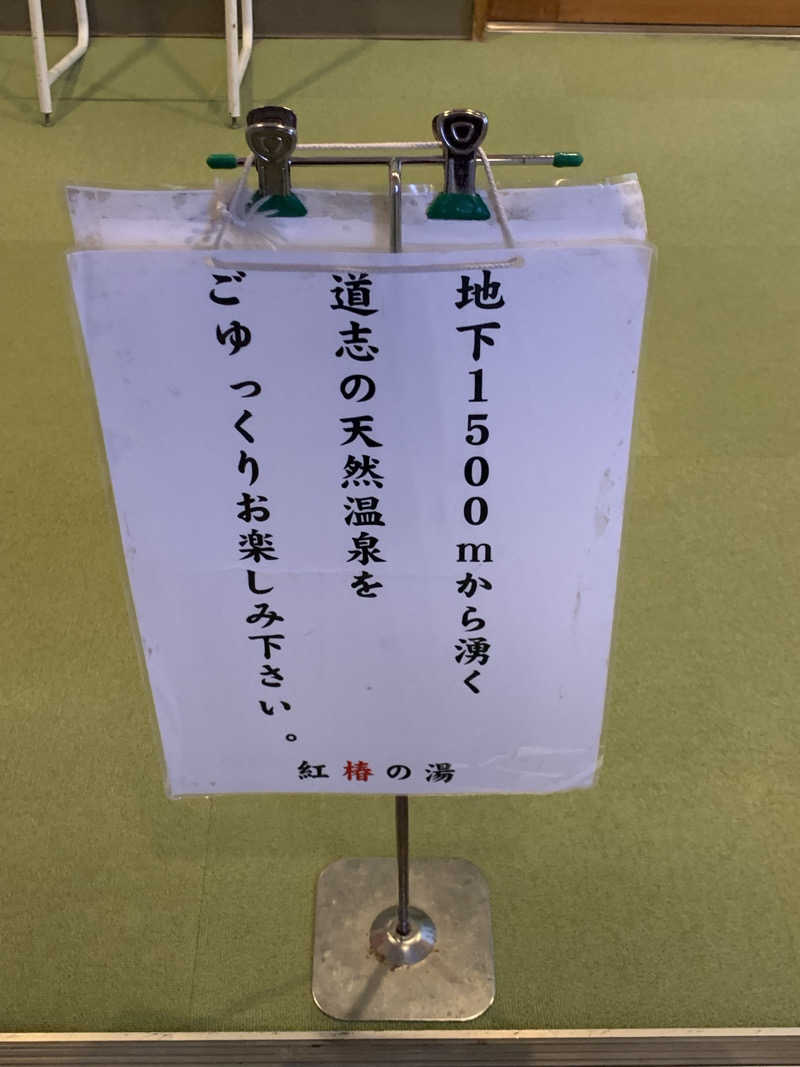 地下1500mから湧く
道志の天然温泉を
ごゆっくりお楽しみ下さい。
紅椿の湯